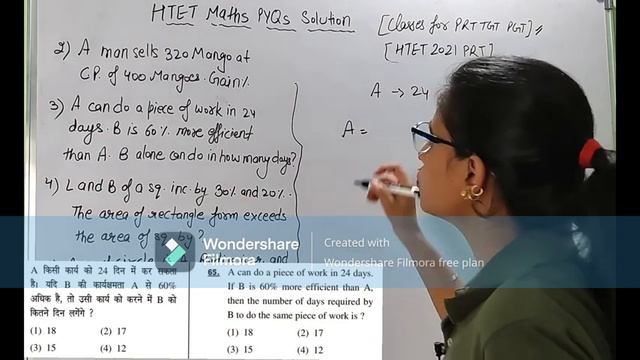 HTET Maths PYQs Solution
[Classes for PRT TGT PGT]
[HTET 2021 PRT]
2) A man sells 320 Mango at
C.P. of 400 Mangoes. Gain%
3) A can do a piece of work in 24
days. B is 60% more efficient
than A. B alone can do in how many days?
4) L and B of a sq. inc. by 30% and 20%.
The area of rectangle form exceeds
the area of sq. by?
A → 24
A =
Wondershare
Filmora
Created with
Wondershare Filmora free plan
A किसी कार्य को 24 दिन में कर सकता
है। यदि B की कार्यक्षमता A से 60%
अधिक है, तो उसी कार्य को करने में B को
कितने दिन लगेंगे ?
(1) 18 (2) 17
(3) 15 (4) 12
65. A can do a piece of work in 24 days.
If B is 60% more efficient than A,
then the number of days required by
B to do the same piece of work is ?
(1) 18 (2) 17
(3) 15 (4) 12